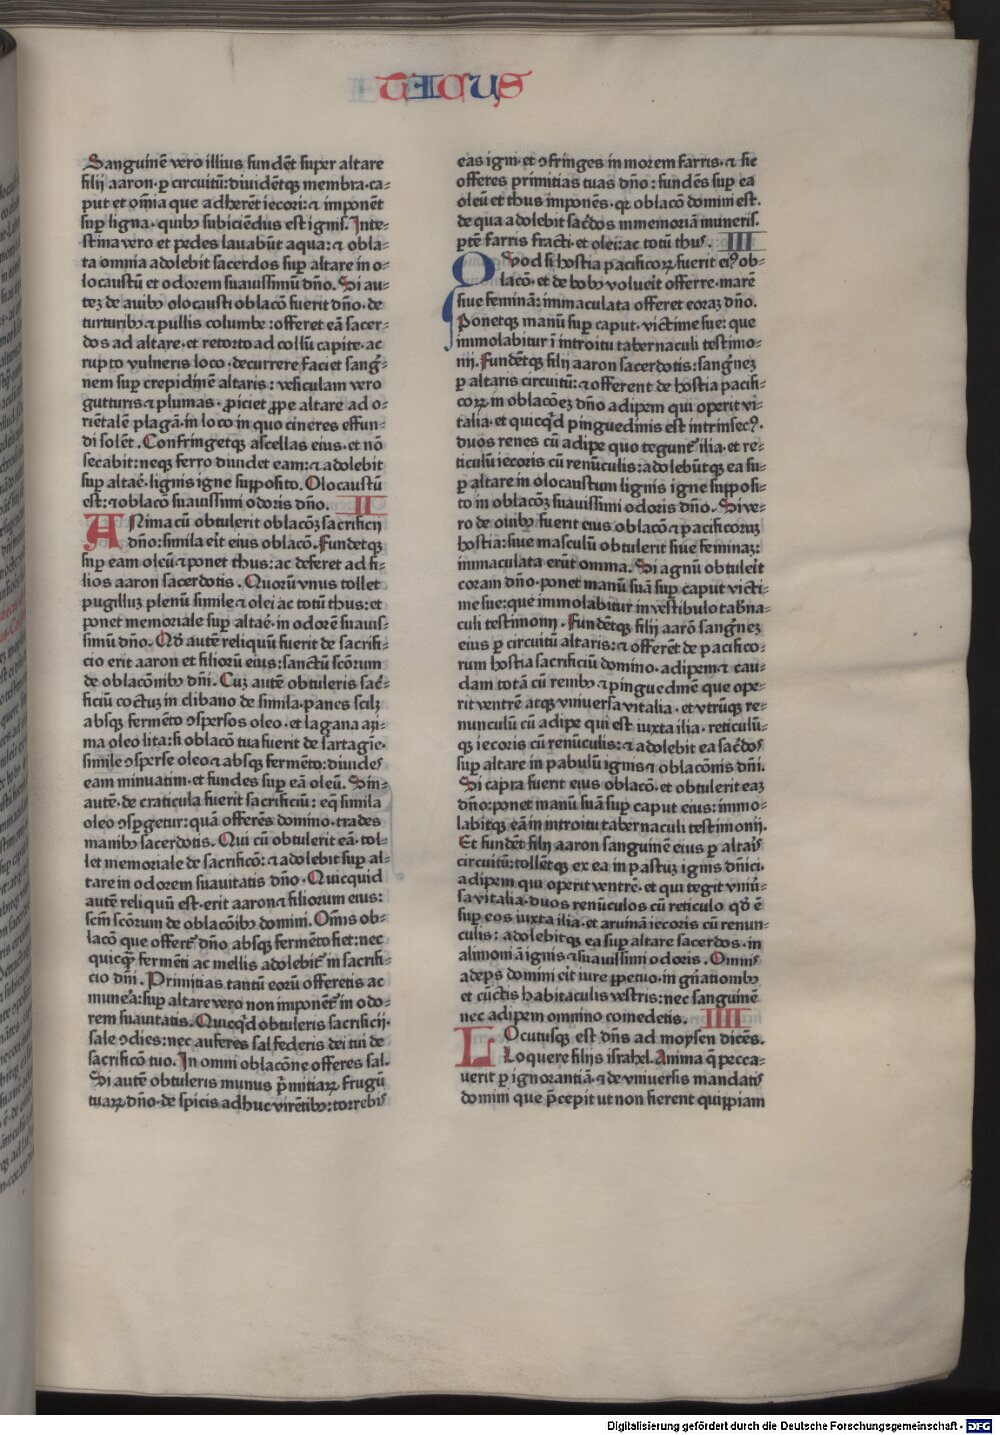 TICUS
Sanguinē vero illius fundēt super altare
filij aaron· ꝑ circuitū: diuidētqꝫ membra· ca⸗
put et om̄ia que adherēt iecori: ⁊ imponēt
suꝑ ligna · quibꝰ subiciēdus est ignis. Inte⸗
stina vero et pedes lauabūt aqua: ⁊ obla⸗
ta omnia adolebit sacerdos suꝑ altare in o⸗
locaustū et odorem suauissimū dn̄o. Si au⸗
teꝫ de auibꝰ olocausti oblac̄o fuerit dn̄o · de
turturibꝰ ⁊ pullis columbe : offeret eā sacer⸗
dos ad altare· et retorto ad collū capite· ac
rupto vulneris loco · decurrere faciet sanḡ⸗
nem suꝑ crepidinē altaris : vesiculam vero
gutturis ⁊ plumas · ꝓiciet ꝓpe altare ad o⸗
riētalē plagā· in loco in quo cineres effun⸗
di solēt . Confringetqꝫ ascellas eius· et nō
secabit: neqꝫ ferro diuidet eam: ⁊ adolebit
suꝑ altaē· lignis igne supposito. Olocaustū
est: ⁊ oblac̄o suauissimi odoris dn̄o. II
ANima cū obtulerit oblac̄oꝫ sacrificij
dn̄o: simila erit eius oblac̄o. Fundetqꝫ
suꝑ eam oleū ⁊ ponet thus: ac deferet ad fi⸗
lios aaron sacerdotis . Quorū vnus tollet
pugilluꝫ plenū simile ⁊ olei ac totū thus: et
ponet memoriale suꝑ altaē· in odorē suauis⸗
simū dn̄o. Qd̄ autē reliquū fuerit de sacrifi⸗
cio erit aaron et filiorū eius: sanctū sc̄orum
de oblac̄onibꝰ dn̄i. Cuꝫ autē obtuleris sac̄⸗
ficiū coctuꝫ in clibano de simila· panes scilꝫ
absqꝫ fermēto ɔspersos oleo · et lagana azi⸗
ma oleo lita: si oblac̄o tua fuerit de sartagīe·
simile ɔsperse oleo ⁊ absqꝫ fermēto: diuides
eam minuatim · et fundes suꝑ eā oleū. Sin⸗
autē· de craticula fuerit sacrificiū: eq̄ simila
oleo ɔsꝑgetur: quā offerēs domino · trades
manibꝰ sacerdotis. Qui cū obtulerit eā· tol⸗
let memoriale de sacrific̄o: ⁊ adolebit suꝑ al⸗
tare in odorem suauitatis dn̄o · Quicquid
autē reliquū est· erit aaron ⁊ filiorum eius:
scm̄ sc̄orum de oblac̄oībꝰ domini. Om̄is ob⸗
lac̄o que offert̄ dn̄o absqꝫ fermēto fiet: nec
quicq̄ fermēti ac mellis adolebit̄ in sacrifi⸗
cio dn̄i . Primitias tantū eorū offeretis ac
munera: suꝑ altare vero non imponēt̄ in odo⸗
rem suauitatis. Quicq̄d obtuleris sacrificij·
sale ɔdies: nec auferes sal federis dei tui de
sacrific̄o tuo. In omni oblac̄one offeres sal.
Si autē obtuleris munus p̄mitiaꝝ frugū
tuaꝝ dn̄o· de spicis adhuc virētibꝰ: torrebis
eas igni· et ɔfringes in morem farris· ⁊ sic
offeres primitias tuas dn̄o : fundēs suꝑ ea
oleū et thus imponēs· qꝛ oblac̄o domini est.
de qua adolebit sac̄dos in memoriā muneris.
ꝑtē farris fracti· et olei: ac totū thus . III
QVod si hostia pacificoꝝ fuerit eiꝰ ob⸗
lac̄o· et de bobꝰ voluerit offerre· marē
siue feminā: immaculata offeret coraꝫ dn̄o.
Ponetqꝫ manū suꝑ caput· victime sue: que
immolabitur ī introitu tabernaculi testimo⸗
nij. Fundētqꝫ filij aaron sacerdotis: sanḡneꝫ
ꝑ altaris circuitū: ⁊ offerent de hostia pacifi⸗
coꝝ in oblac̄oeꝫ dn̄o adipem qui operit vi⸗
talia · et quicq̄d pinguedinis est intrinsecꝰ·
duos renes cū adipe quo tegunt̄ ilia· et re⸗
ticulū iecoris cū renūculis: adolebūtqꝫ ea su⸗
ꝑ altare in olocaustum lignis igne supposi⸗
to in oblac̄oꝫ suauissimi odoris dn̄o. Si ve⸗
ro de ouibꝰ fuerit eius oblac̄o ⁊ pacificoruꝫ
hostia: siue masculū obtulerit siue feminaꝫ:
immaculata erūt omnia. Si agnū obtulerit
coram dn̄o· ponet manū suā suꝑ caput victi⸗
me sue: que immolabitur in vestibulo tab̄na⸗
culi testimonij . Fundētqꝫ filij aarō sanḡneꝫ
eius ꝑ circuitū altaris: ⁊ offerēt de pacifico⸗
rum hostia sacrificiū domino · adipem ⁊ cau⸗
dam totā cū renibꝰ ⁊ pinguedinē que ope⸗
rit ventrē atqꝫ vniuersa vitalia · et vtrūqꝫ re⸗
nunculū cū adipe qui est iuxta ilia · reticulū⸗
qꝫ iecoris cū renūculis: ⁊ adolebit ea sac̄dos
suꝑ altare in pabulū ignis ⁊ oblac̄onis dn̄i.
Si capra fuerit eius oblac̄o· et obtulerit eaꝫ
dn̄o: ponet manū suā suꝑ caput eius: immo⸗
labitqꝫ eā in introitu tabernaculi testimonij.
Et fundēt filij aaron sanguinē eius ꝑ altaris
circuitū: tollētqꝫ ex ea in pastuꝫ ignis dn̄ici·
adipem qui operit ventrē· et qui tegit vniū⸗
sa vitalia· duos renūculos cū reticulo qd̄ ē
suꝑ eos iuxta ilia · et aruinā iecoris cū renun⸗
culis: adolebitqꝫ ea suꝑ altare sacerdos· in
alimoniā ignis ⁊ suauissimi odoris . Omnis
adeps domini erit iure ꝑpetuo· in gn̄aīonibꝰ
et cūctis habitaculis vestris: nec sanguinē
nec adipem omnino comedetis. IIII
LOcutusqꝫ est dn̄s ad moysen dicēs.
Loquere filijs israhel. Anima q̄ pecca⸗
uerit ꝑ ignorantiā· ⁊ de vniuersis mandatis
domini que p̄cepit ut non fierent quippiam
Digitalisierung gefördert durch die Deutsche Forschungsgemeinschaft · DFG